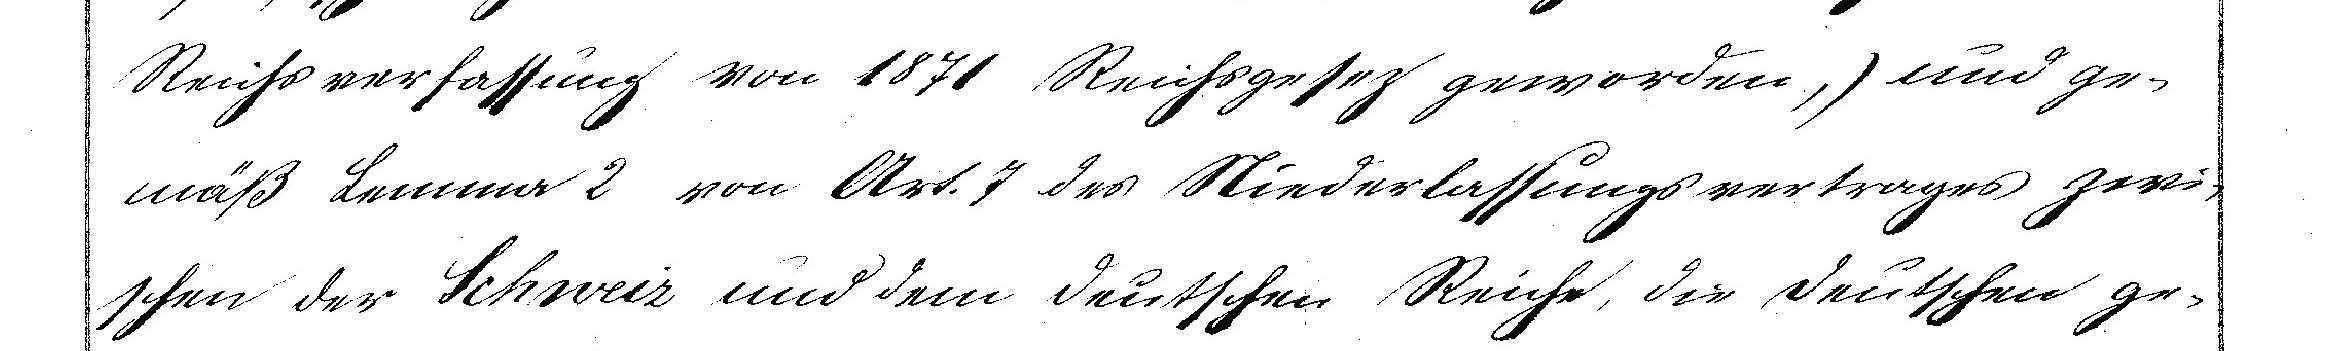 Reichsverfassung von 1871 Reichsgesez geworden,) und ge-
mäß Lemma 2 von Art. 7 des Niederlassungsvertrages zwi-
schen der Schweiz und dem deutschen Reiche, die deutschen ge-